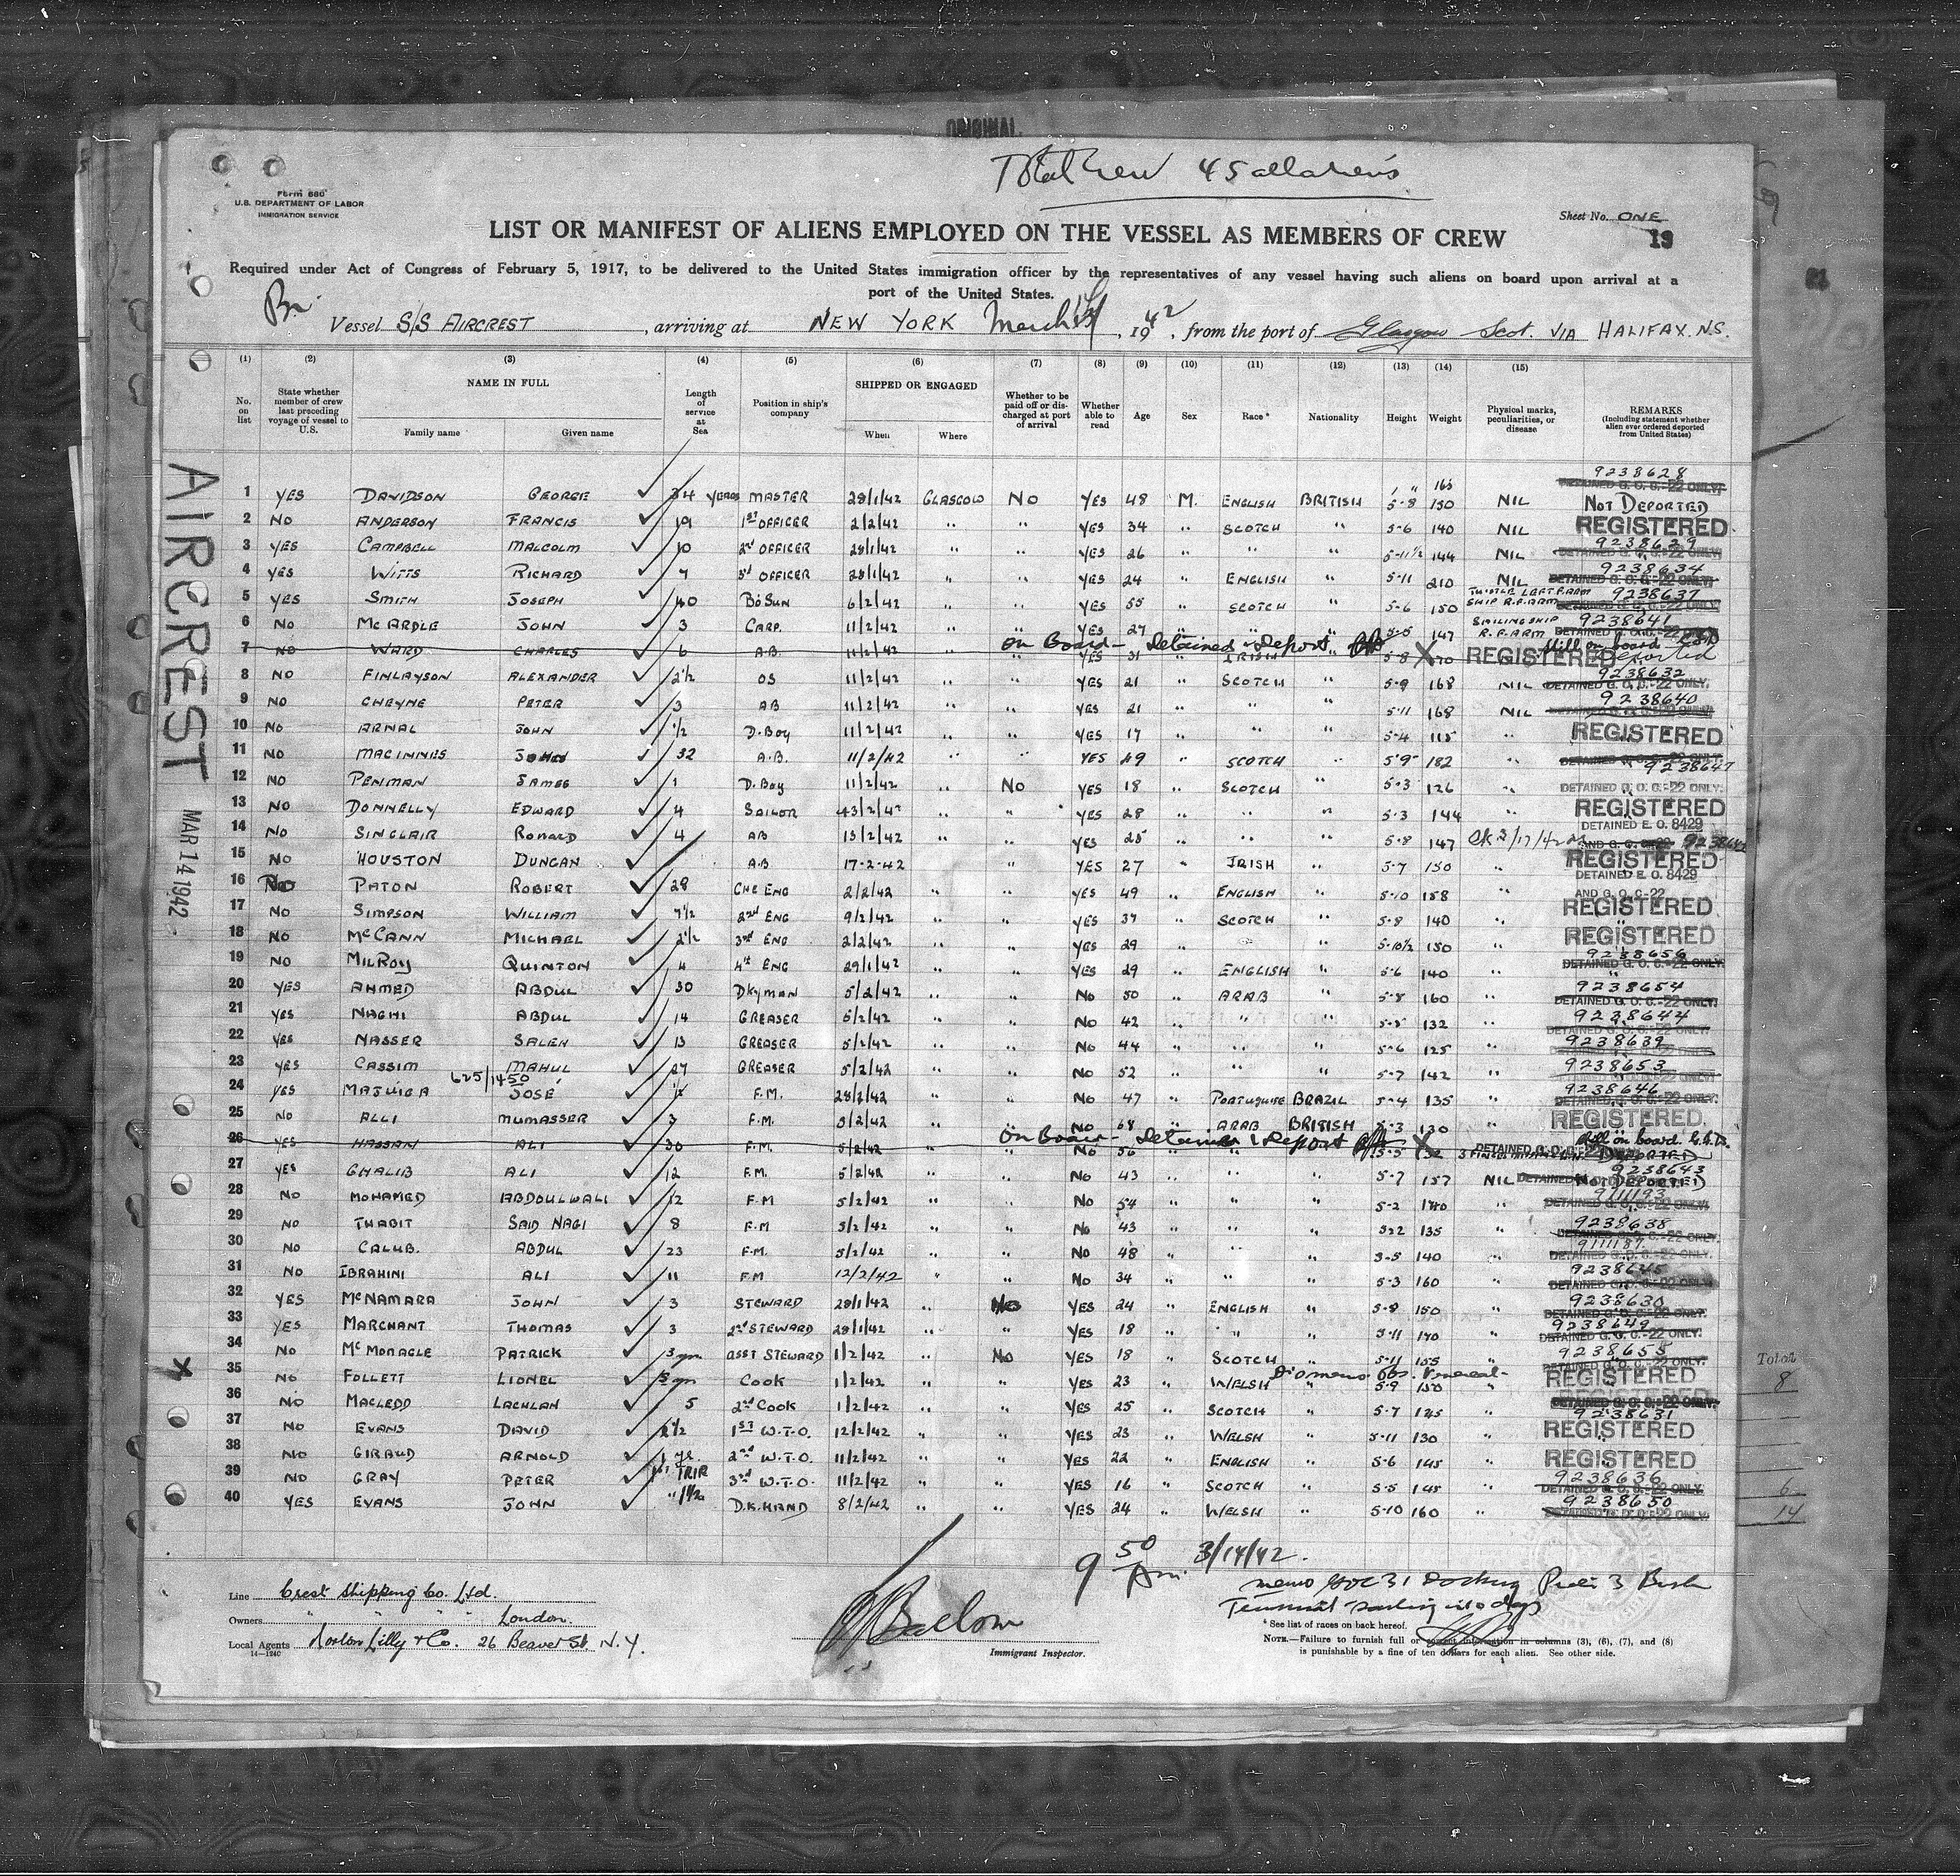 ORIGINAL
Total Crew 45 all aliens
Form 680
U.S. DEPARTMENT OF LABOR
IMMIGRATION SERVICE
Sheet No. ONE
19
LIST OR MANIFEST OF ALIENS EMPLOYED ON THE VESSEL AS MEMBERS OF CREW
Required under Act of Congress of February 5, 1917, to be delivered to the United States immigration officer by the representatives of any vessel having such aliens on board upon arrival at a
port of the United States.
Br.
Vessel S/S AIRCREST, arriving at NEW YORK March 14, 1942, from the port of Glasgow Scot. VIA HALIFAX. N.S.
AIRCREST
MAR 14 1942
(1) (2) (3) (4) (5) (6) (7) (8) (9) (10) (11) (12) (13) (14) (15)
No. on list State whether member of crew last preceding voyage of vessel to U.S. NAME IN FULL Family name Given name Length of service at Sea Position in ship's company SHIPPED OR ENGAGED When Where Whether to be paid off or discharged at port of arrival Whether able to read Age Sex Race* Nationality Height Weight Physical marks, peculiarities, or disease REMARKS (Including statement whether alien ever ordered deported from United States)
9238628
1 YES DAVIDSON GEORGE 34 YEARS MASTER 28/1/42 GLASGOW NO YES 48 M. ENGLISH BRITISH 5-8 150 165 NIL NOT DEPORTED
2 NO ANDERSON FRANCIS 19 1ST OFFICER 2/2/42 " " YES 34 " SCOTCH " 5-6 140 NIL REGISTERED
3 YES CAMPBELL MALCOLM 10 2nd OFFICER 28/1/42 " " YES 26 " " " 5-11½ 144 NIL 9238629 DETAINED G. O. C.-22 ONLY.
4 YES WITTS RICHARD 7 3rd OFFICER 28/1/42 " " YES 24 " ENGLISH " 5-11 210 NIL 9238634 DETAINED G. O. C.-22 ONLY.
5 YES SMITH JOSEPH 40 BOSUN 6/2/42 " " YES 55 " SCOTCH " 5-6 150 THISTLE LEFT F.ARM SHIP R.F.ARM 9238637
6 NO MCARDLE JOHN 3 CARP. 11/2/42 " " YES 27 " " " 5-5 147 SAILING SHIP R.F.ARM 9238641 DETAINED G. O. C.-22 ONLY.
7 NO WARD CHARLES 6 A.B. 11/2/42 On Board - Detained & Deport YES 31 IRISH 5-8 170 REGISTERED still on board Deported
8 NO FINLAYSON ALEXANDER 2½ OS 11/2/42 " " YES 21 " SCOTCH " 5-9 168 NIL 9238632 DETAINED G. O. C.-22 ONLY.
9 NO CHEYNE PETER 3 AB 11/2/42 " " YES 21 " " " 5-11 168 NIL 9238640
10 NO ARNAL JOHN ½ D.BOY 11/2/42 " " YES 17 " " " 5-4 115 " REGISTERED
11 NO MACINNIES JOHN 32 A.B. 11/2/42 " " YES 49 " SCOTCH 5'9" 182 " 9238647
12 NO PENMAN JAMES 1 D.BOY 11/2/42 " NO YES 18 " SCOTCH " 5-3 126 " DETAINED G. O. C.-22 ONLY.
13 NO DONNELLY EDWARD 4 SAILOR 13/2/42 " " YES 28 " " " 5-3 144 REGISTERED DETAINED E. O. 8429
14 NO SINCLAIR RONALD 4 AB 13/2/42 " " YES 25 " " " 5-8 147 9238642
15 NO HOUSTON DUNCAN A.B 17-2-42 YES 27 " IRISH 5-7 150 REGISTERED DETAINED E. O. 8429 AND G. O. C-22
16 NO PATON ROBERT 28 CHF ENG 2/2/42 " " YES 49 " ENGLISH " 5-10 158 "
17 NO SIMPSON WILLIAM 7½ 2nd ENG 9/2/42 " " YES 37 " SCOTCH " 5-8 140 " REGISTERED
18 NO MCCANN MICHAEL 2½ 3rd ENG 2/2/42 " " YES 29 " " " 5-10½ 150 " REGISTERED
19 NO MILROY QUINTON 4 4th ENG 29/1/42 " " YES 29 " ENGLISH " 5-6 140 " 9238656 DETAINED G. O. C.-22 ONLY.
20 YES AHMED ABDUL 30 DKYMAN 5/2/42 " " NO 50 " ARAB " 5-8 160 " 9238654 DETAINED G. O. C.-22 ONLY.
21 YES NAGHI ABDUL 14 GREASER 5/2/42 " " NO 42 " " " 5-5 132 " 9238644 DETAINED G. O. C.-22 ONLY.
22 YES NASSER SALEH 13 GREASER 5/2/42 " " NO 44 " " " 5-6 125 " 9238639
23 YES CASSIM MAHUL 27 GREASER 5/2/42 " " NO 52 " " " 5-7 142 " 9238653
625/1450
24 YES JOSÉ F.M. 28/2/42 " " NO 47 " PORTUGUESE BRAZIL 5-4 135 " 9238646 DETAINED G. O. C.-22 ONLY.
25 NO ALLI MUMASSER 3 F.M. 5/2/42 " " NO 68 " ARAB BRITISH 5-3 130 " REGISTERED.
26 YES HASSAN ALI 30 F.M. 5/2/42 On Board - Detained & Deport NO 56 5-5 still on board DEPORTED
27 YES GHALIB ALI 12 F.M. 5/2/42 " " NO 43 " " " 5-7 157 NIL 9238643 NOT DEPORTED
28 NO MOHAMED ABDOULWALI 12 F.M 5/2/42 " " NO 54 " " " 5-2 140 " 9111193
29 NO THABIT SAID NAGI 8 F.M 5/2/42 " " NO 43 " " " 135 " 9238638 DETAINED G. O. C.-22 ONLY.
30 NO CALUB. ABDUL 23 F.M. 5/2/42 " " NO 48 " " " 5-5 140 " 9111187 DETAINED G. O. C.-22 ONLY.
31 NO IBRAHINI ALI 11 F.M 12/2/42 " " NO 34 " " " 5-3 160 " 9238645
32 YES MCNAMARA JOHN 3 STEWARD 28/1/42 " NO YES 24 " ENGLISH " 5-8 150 " 9238630
33 YES MARCHANT THOMAS 3 2nd STEWARD 28/1/42 " " YES 18 " " " 5-11 140 " 9238649 DETAINED G. O. C.-22 ONLY.
34 NO MCMONAGLE PATRICK ASST STEWARD 1/2/42 " NO YES 18 " SCOTCH " 5-11 155 " 9238655 DETAINED G. O. C.-22 ONLY.
35 NO FOLLETT LIONEL COOK 1/2/42 " " YES 23 " WELSH " 5-9 150 " REGISTERED
36 NO MACLEOD LACHLAN 5 2nd COOK 1/2/42 " " YES 25 " SCOTCH " 5-7 145 " 9238631
37 NO EVANS DAVID 2½ 1ST W.T.O. 12/2/42 " " YES 23 " WELSH " 5-11 130 " REGISTERED
38 NO GIRAUD ARNOLD 1 yr. 2nd W.T.O. 11/2/42 " " YES 22 " ENGLISH " 5-6 145 " REGISTERED
39 NO GRAY PETER 1st TRIP 3rd W.T.O. 11/2/42 " " YES 16 " SCOTCH " 5-5 145 " 9238636 DETAINED G. O. C.-22 ONLY.
40 YES EVANS JOHN D.K.HAND 8/2/42 " " YES 24 " WELSH " 5-10 160 " 9238650
Total
8
6
14
9 50 Am. 3/14/42.
Line Crest Shipping Co. Ltd.
Owners " " " London.
Local Agents Norton Lilly & Co. 26 Beaver St. N.Y.
14-1240
Immigrant Inspector.
* See list of races on back hereof.
NOTE.—Failure to furnish full or correct information in columns (3), (6), (7), and (8)
is punishable by a fine of ten dollars for each alien. See other side.